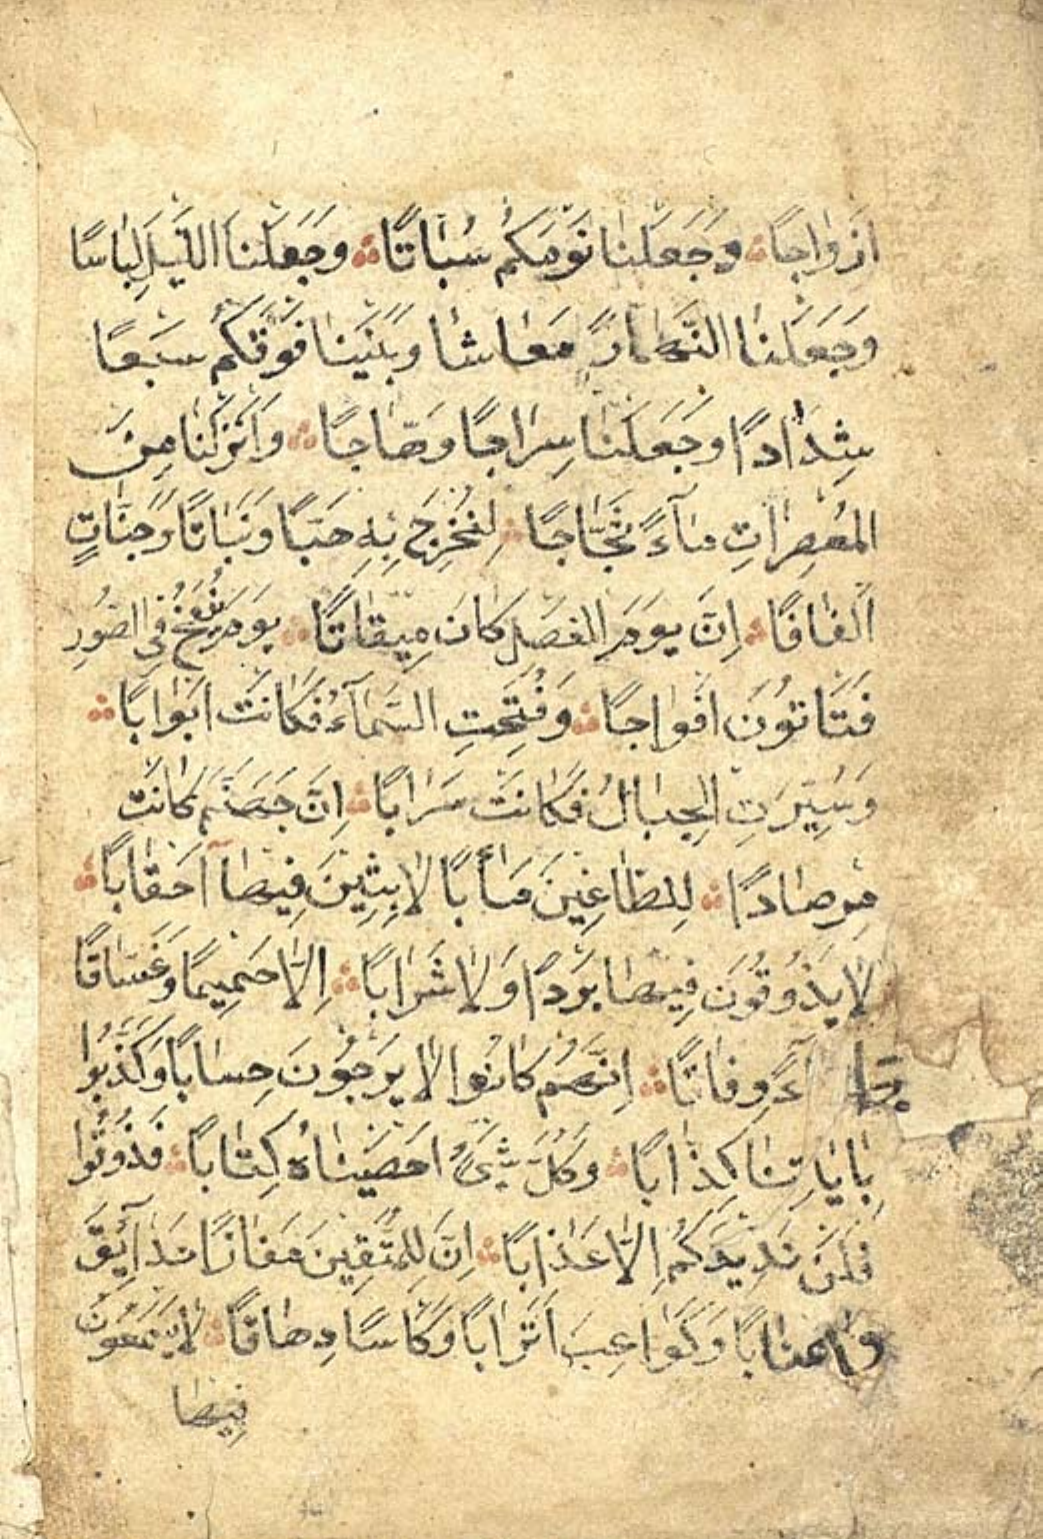 اَزْوَاجًا وَجَعَلْنَا نَوْمَكُمْ سُبَاتًا وَجَعَلْنَا اللَّيْلَ لِبَاسًا
وَجَعَلْنَا النَّهَارَ مَعَاشًا وَبَنَيْنَا فَوْقَكُمْ سَبْعًا
شِدَادًا وَجَعَلْنَا سِرَاجًا وَهَّاجًا وَاَنْزَلْنَا مِنَ
الْمُعْصِرَاتِ مَآءً ثَجَّاجًا لِنُخْرِجَ بِهِ حَبًّا وَنَبَاتًا وَجَنَّاتٍ
اَلْفَافًا اِنَّ يَوْمَ الْفَصْلِ كَانَ مِيقَاتًا يَوْمَ يُنْفَخُ فِي الصُّورِ
فَتَاْتُونَ اَفْوَاجًا وَفُتِحَتِ السَّمَآءُ فَكَانَتْ اَبْوَابًا
وَسُيِّرَتِ الْجِبَالُ فَكَانَتْ سَرَابًا اِنَّ جَهَنَّمَ كَانَتْ
مِرْصَادًا لِلطَّاغِينَ مَاٰبًا لَابِثِينَ فِيهَآ اَحْقَابًا
لَا يَذُوقُونَ فِيهَا بَرْدًا وَلَا شَرَابًا اِلَّا حَمِيمًا وَغَسَّاقًا
جَزَآءً وِفَاقًا اِنَّهُمْ كَانُوا لَا يَرْجُونَ حِسَابًا وَكَذَّبُوا
بِاٰيَاتِنَا كِذَّابًا وَكُلَّ شَيْءٍ اَحْصَيْنَاهُ كِتَابًا فَذُوقُوا
فَلَنْ نَزِيدَكُمْ اِلَّا عَذَابًا اِنَّ لِلْمُتَّقِينَ مَفَازًا حَدَآئِقَ
وَاَعْنَابًا وَكَوَاعِبَ اَتْرَابًا وَكَاْسًا دِهَاقًا لَا يَسْمَعُونَ
فِيهَا